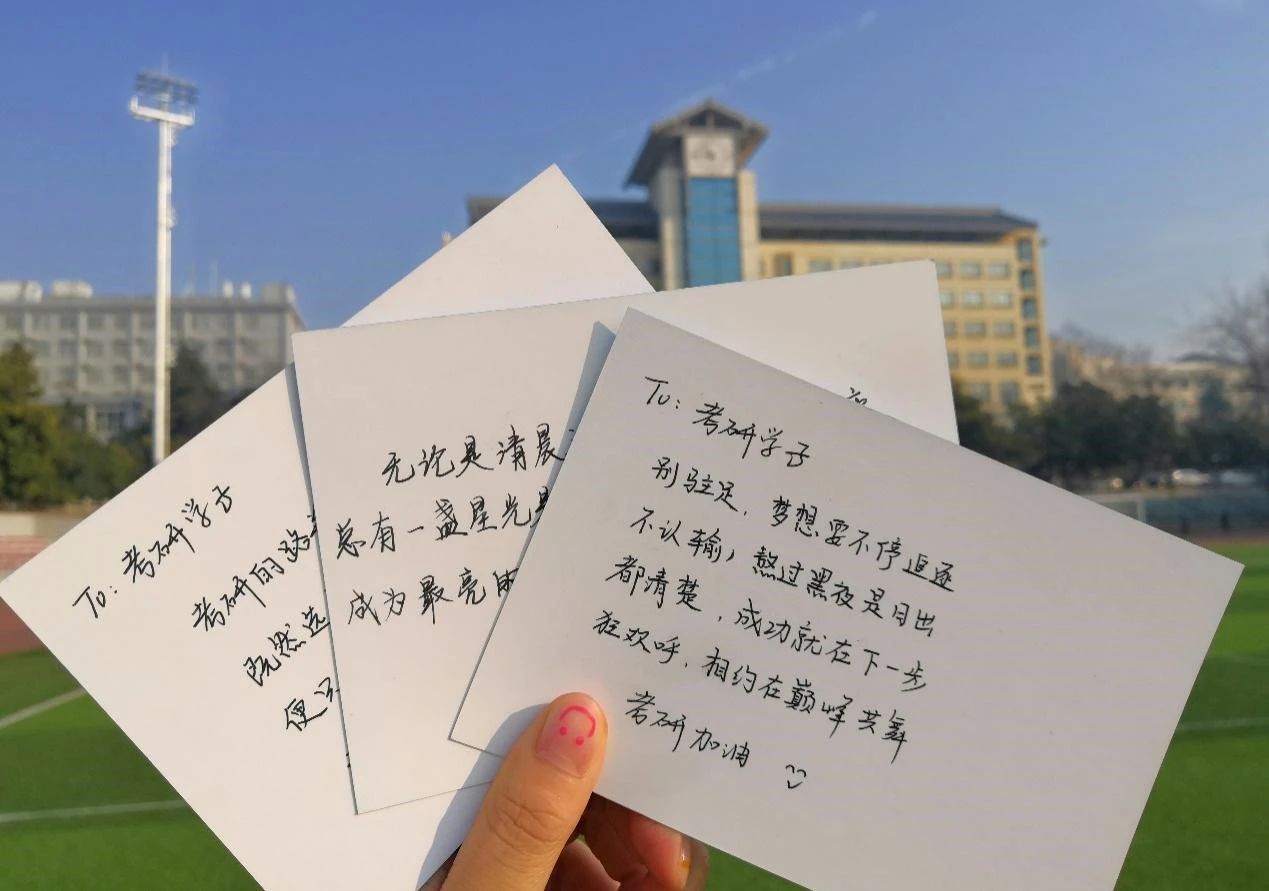 To: 考研学子
考研的路
既然选
便
无论是清晨
总有一盏星光
成为最亮的
To: 考研学子
别驻足,梦想要不停追逐
不认输,熬过黑夜是日出
都清楚,成功就在下一步
狂欢呼,相约在巅峰共舞
考研加油